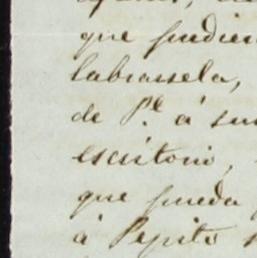 que pudie
labrarsela,
de Pl. á su
escritorio,
que pueda
á Pepito